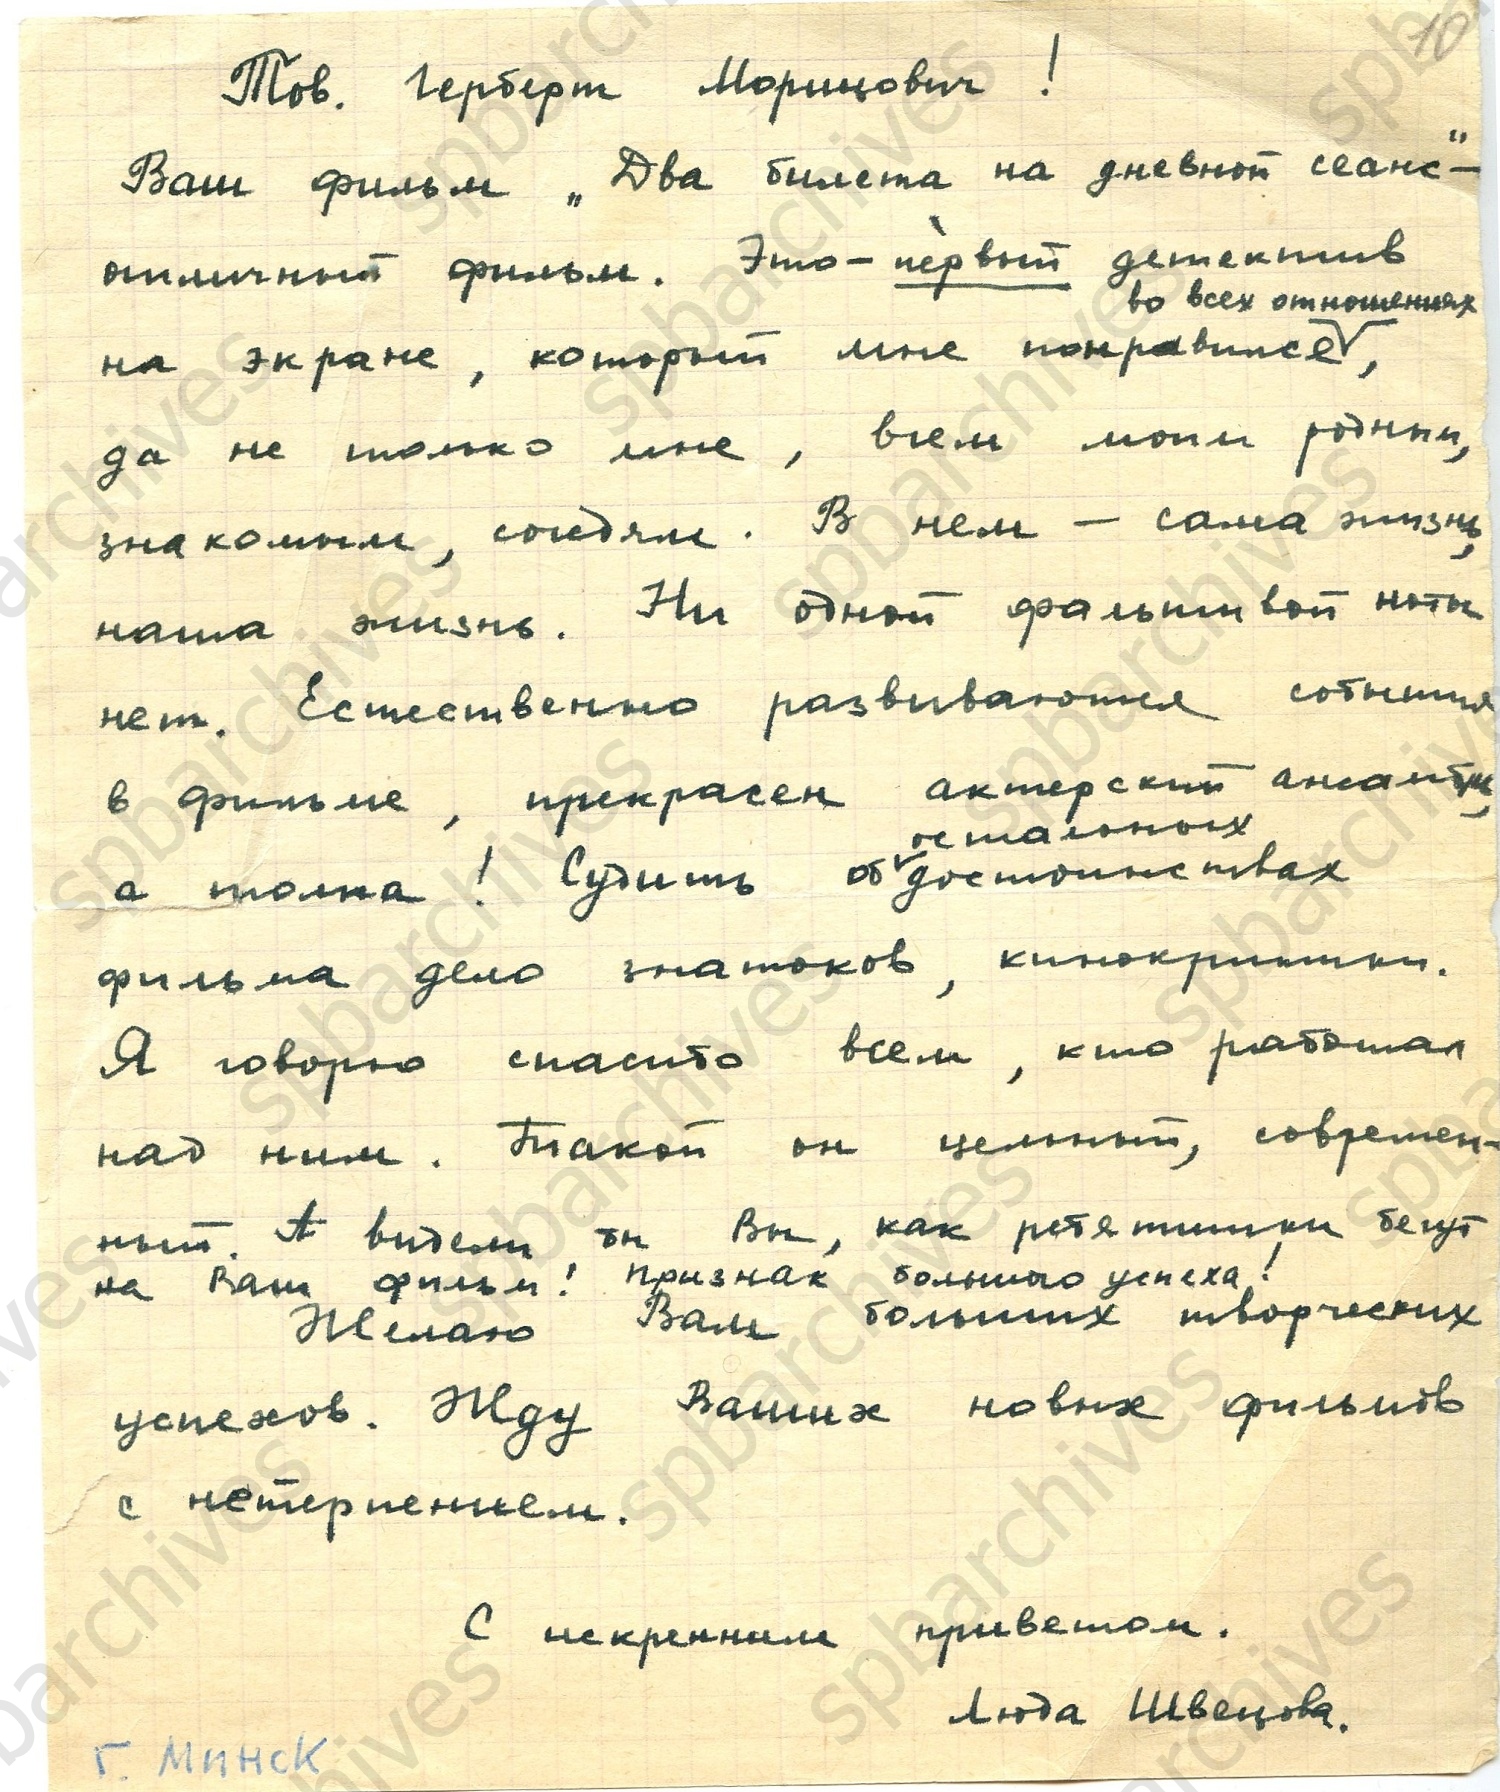 10
Тов. Герберт Морицович!
Ваш фильм „Два билета на дневной сеанс" –
отличный фильм. Это – первый детектив
во всех отношениях
на экране, который мне понравился,
да не только мне, всем моим родным,
знакомым, соседям. В нем – сама жизнь,
наша жизнь. Ни одной фальшивой ноты
нет. Естественно развиваются события
в фильме, прекрасен актерский ансамбль,
остальных
а толпа! Судить об достоинствах
фильма дело знатоков, кинокритики.
Я говорю спасибо всем, кто работал
над ним. Такой он цельный, современ-
ный. А видели бы Вы, как ребятишки бегут
на Ваш фильм! Признак большого успеха!
Желаю Вам больших творческих
успехов. Жду Ваших новых фильмов
с нетерпением.
С искренним приветом.
Люда Швецова.
г. Минск
spbarchives